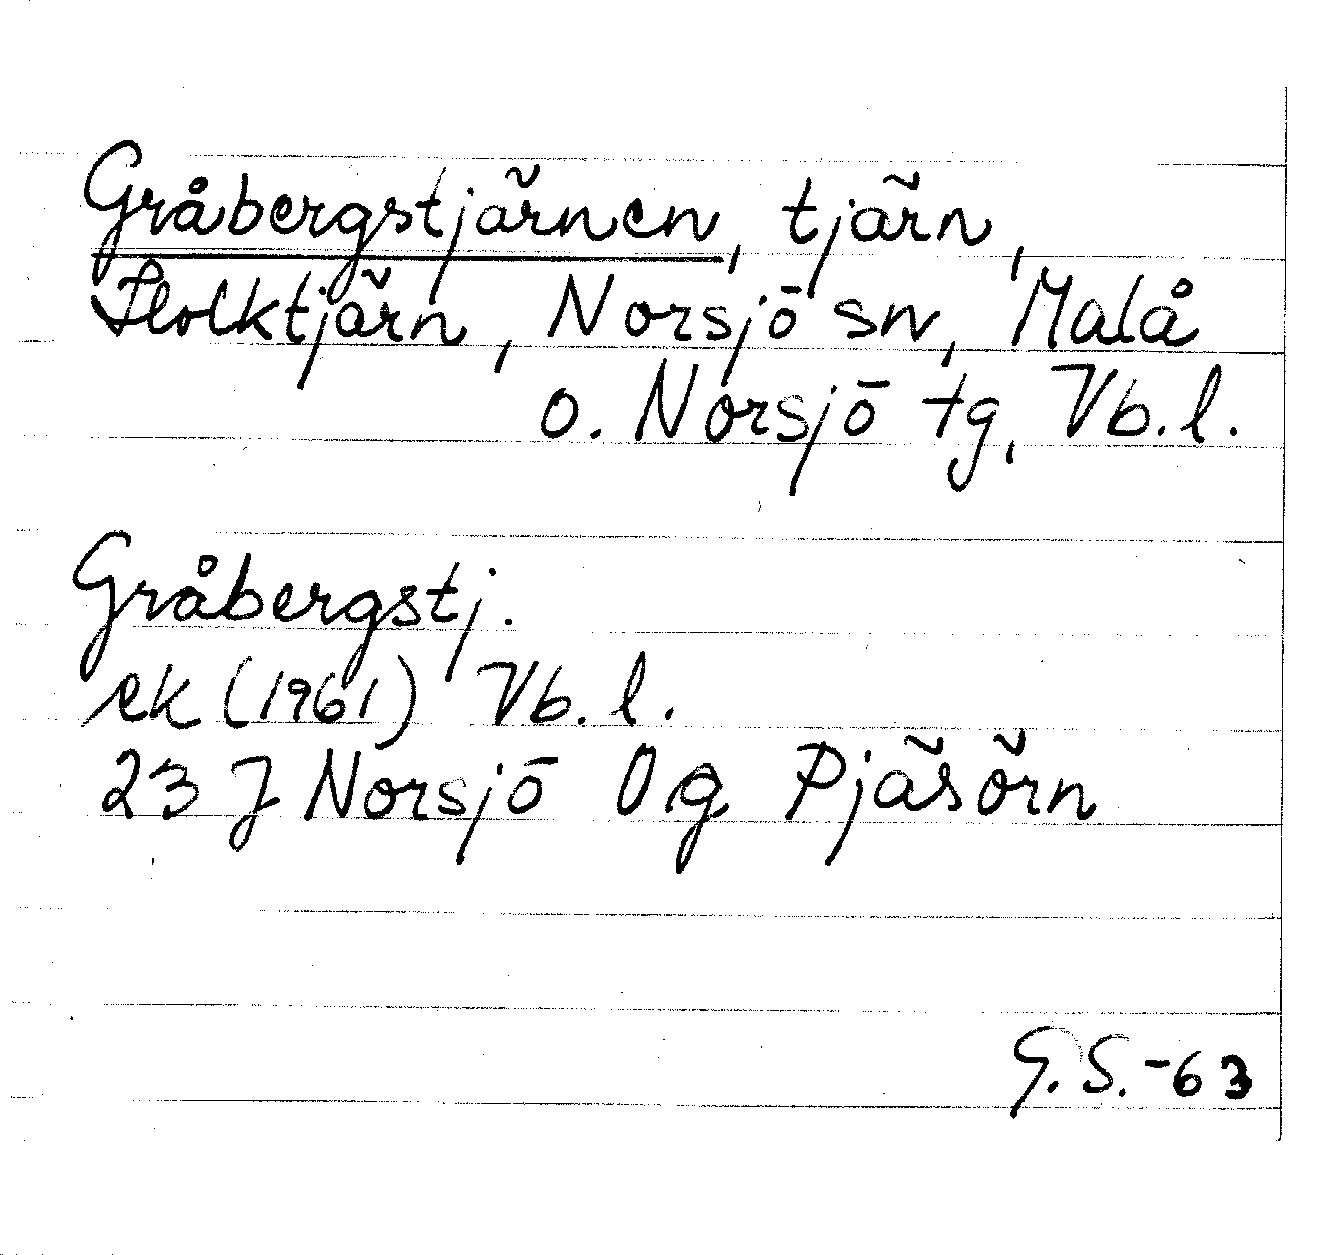 Gråbergstjärnen, tjärn,
Holktjärn, Norsjö sn, Malå
o. Norsjö tg, Vb. l.
Gråbergstj.
ek (1961) Vb. l.
23 J Norsjö 0g Pjäsörn
G. S. -63